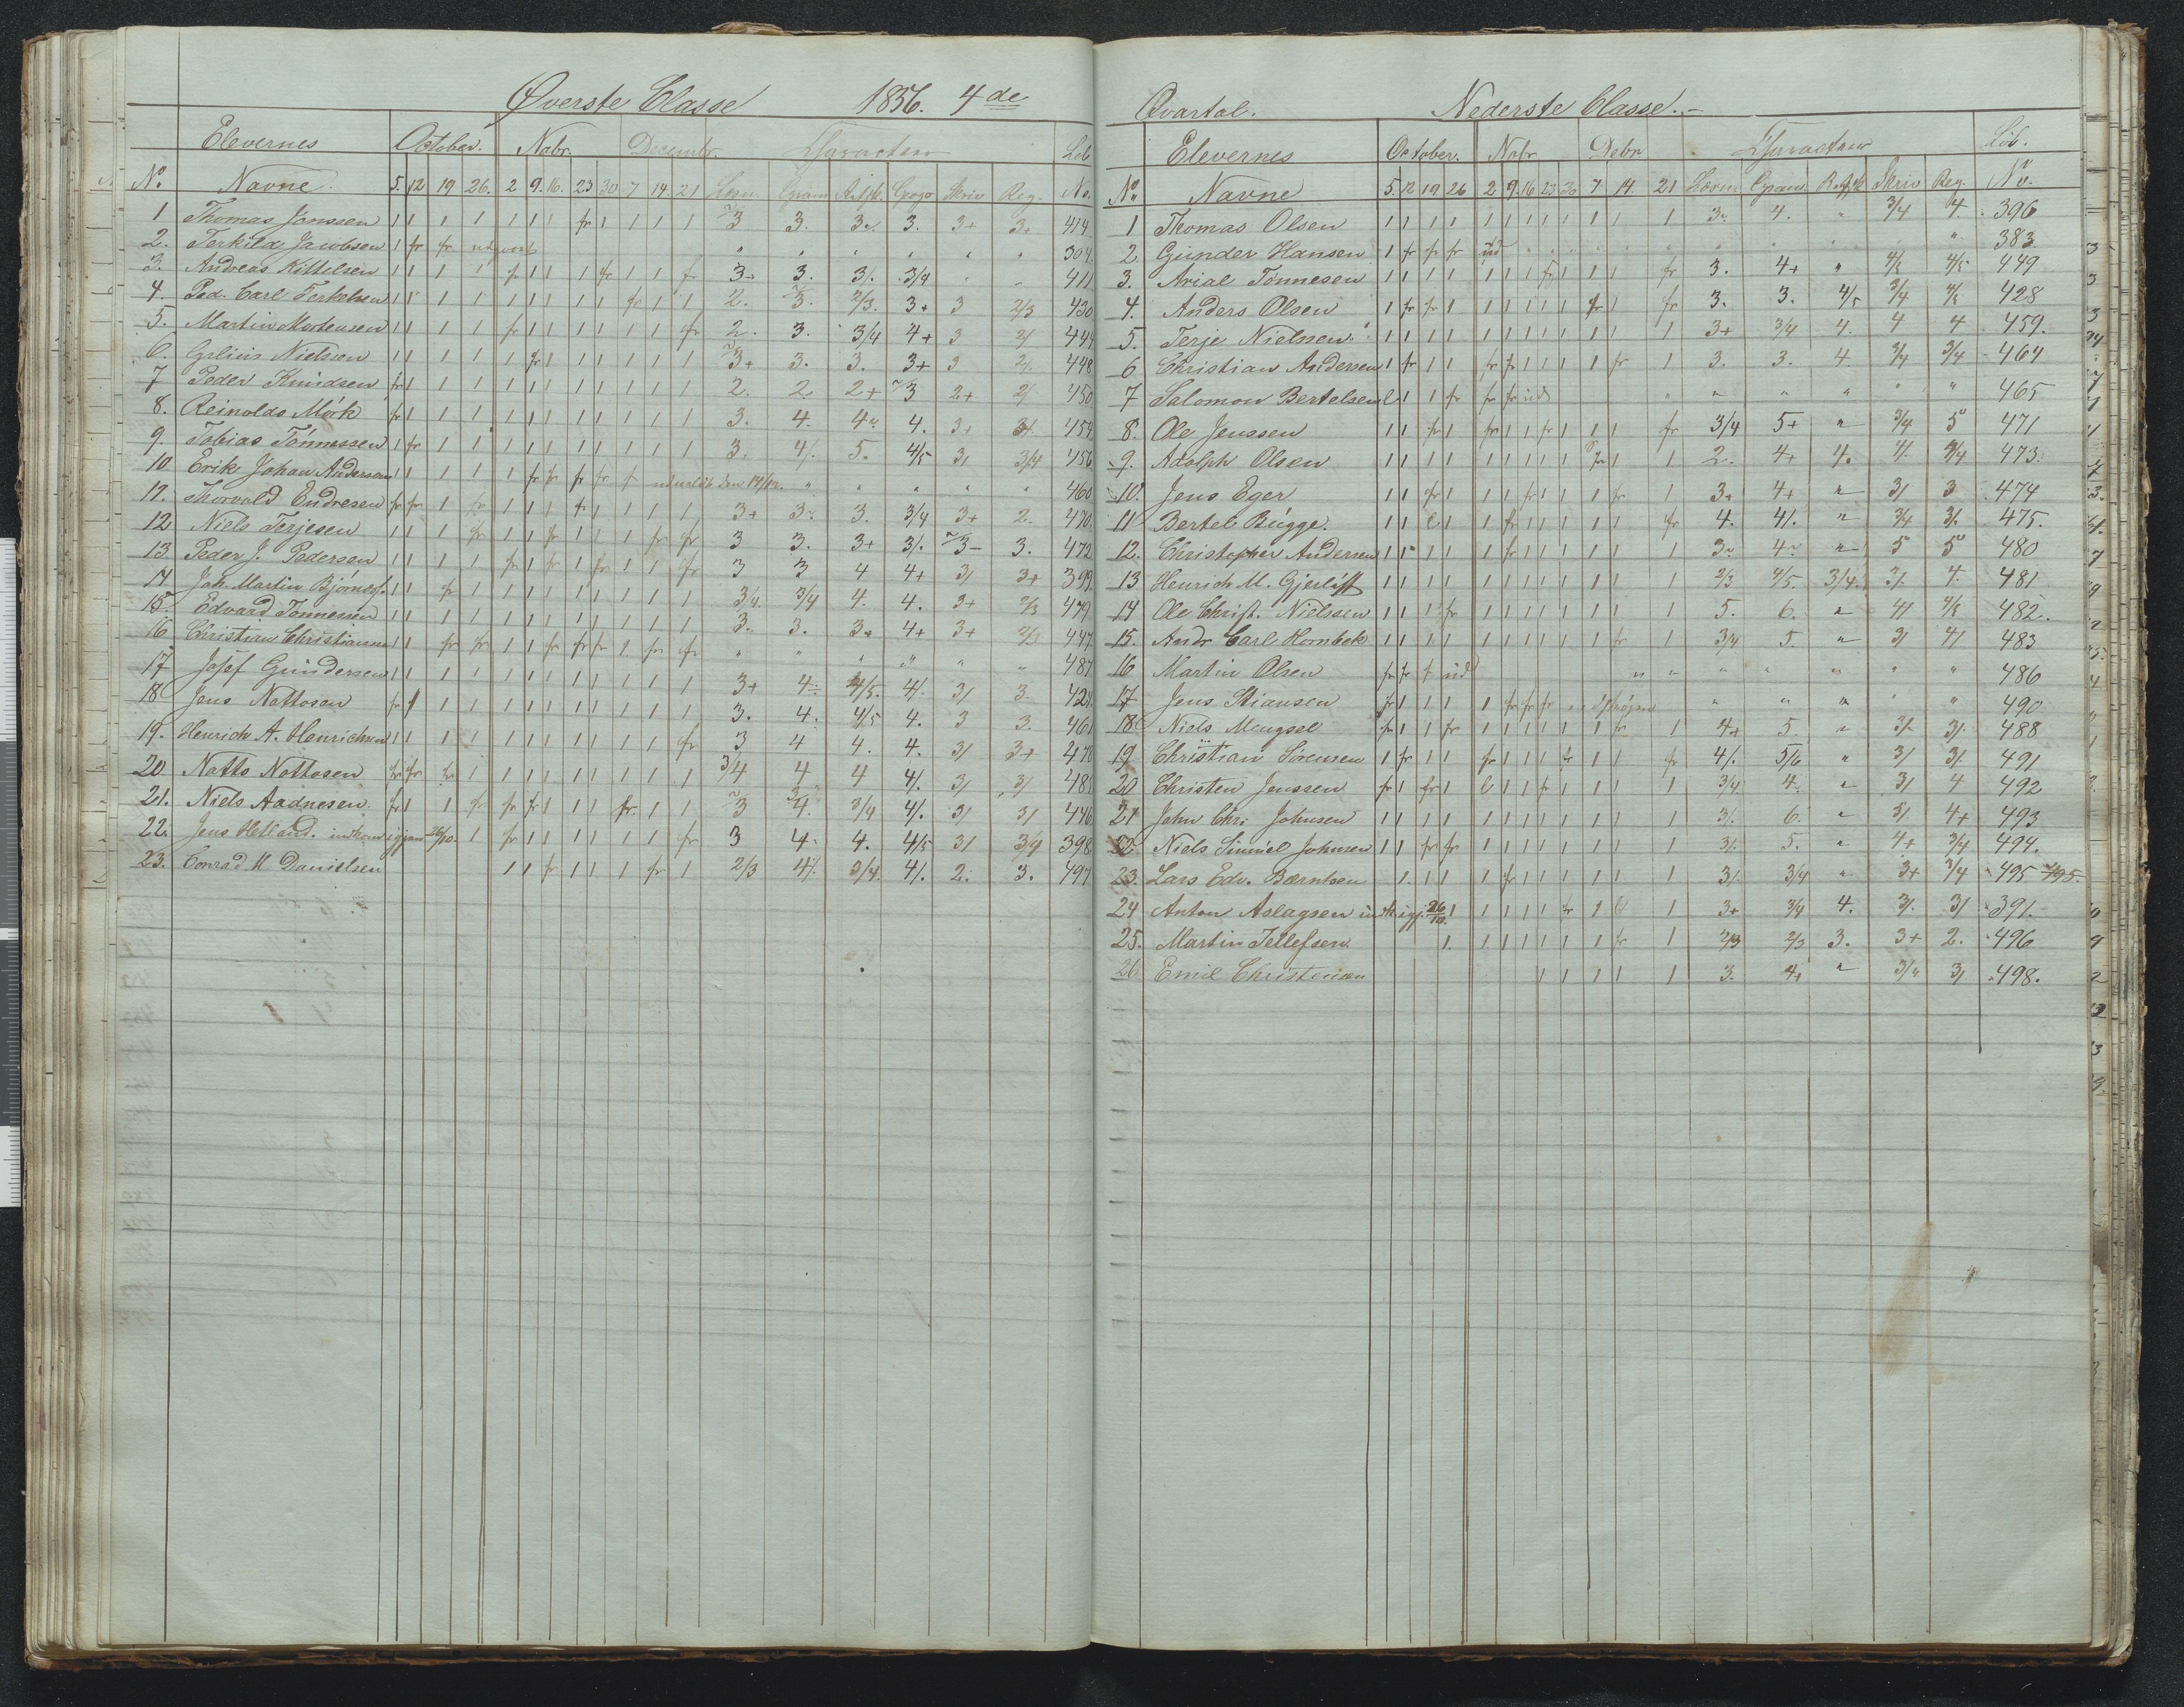 Øverste Classe 1856. 4de
Elevernes October. Nobr. Decembr. Løb
No. Navne. 5. 12 19 26. 2 9. 16. 23 30 7 14. 21 Gram Skriv Reg. No.
1 Thomas Jonssen 1 1 1 1 1 1 1 fr 1 1 1 1 3 3. 3. 3+ 3+ 414
2. Terkild Jacobsen 1 fr fr 304
3. Andreas Kittelsen 1 1 1 1 fr 1 1 1 fr 1 1 f 3+ 3. 3/. 3/4 411
4. Ped. Carl Terkelsen 1 1 1 1 1 1 1 1 1 fr 1 1 2. 3. 2/3. 3+ 3 2/3 430
5. Martin Mortensen 1 1 1 1 fr 1 1 1 1 1 1 fr 2. 3. 3/4 4+ 3 2/ 444
6. Nielsen 1 1 1 1 1 fr 1 1 1 1 1 1 3+ 3. 3. 3+ 3 2/. 448
7 Peder Knudsen fr 1 1 1 1 1 1 1 1 1 1 1 2. 2 2+ 3 2+ 2/ 450
8. Reinoldo Mørk fr 1 1 1 1 1 1 1 1 1 1 1 3. 4. 4. 3+ 454
9. Tobias Tönnessen 1 fr 1 1 1 1 1 1 1 1 1 1 3. 4/. 5. 4/5 3/ 3/4 456
10 Erik Johan Andersen 1 1 1 1 1 fr fr fr fr 460
11. Thorvald Endresen fr fr 1 fr 1 1 1 fr 1 1 1 1 3+ 3. 3/4 3+ 2. 470.
12 Niels Terjesen 1 1 1 fr 1 1 fr 1 1 1 fr fr 3 3. 3+ 3/. 3- 3. 472
13 Peder J. Pedersen 1 1 1 1 fr 1 fr 1 fr 1 1 fr 3 3 4 4+ 3/ 3+ 399
14 Joh. Martin Björnss. 1 1 fr 1 1 1 1 1 1 1 1 1 3/4. 3/4 4. 4. 3+ 2/3 479
15 Edvard Tönnessen 1 1 1 1 1 1 1 1 1 1 1 1 3. 3. 3+ 4+ 3+ 2/3 447
16 Christian Christiansen 1 1 fr fr 1 1 fr fr fr 1 fr fr 487
17 Josef Gundersen 1 1 1 1 1 1 1 1 1 1 1 1 3+ 4/5. 4/. 3/ 3. 424
18 Jens Nottosen fr 1 1 1 1 1 1 1 1 1 1 1 3. 4. 4/5 4. 3 3. 461
19. Henrich A. Henrichsen 1 1 1 1 1 1 1 1 1 1 1 fr 3 4 4. 4. 3/ 3+ 478
20 Notto Nottosen fr fr fr 1 1 1 1 1 1 1 1 1 3/4 4 4 4/. 3/ 3/ 481
21. Niels Aadnesen. fr 1 1 fr fr fr 1 1 1 fr 1 1 3 4. 3/4 4/. 3/ 3/ 446
22. Jens Hetland. indkom igjen 26/10. 1 fr 1 1 1 1 1 1 fr 3 4. 4. 4/5 3/ 3/4 398
23. Conrad M. Danielsen 1 1 fr 1 1 1 fr 1 2/3 4/. 3/4. 4/. 2. 3. 497
Qvartal. Nederste Classe.-
Elevernes October. Nobr. Debr Løb.
No. Navne 5. 12 19 26 2 9. 16 23 30 7 14 21 Gram. Skriv Reg. No.
1 Thomas Olsen 1 1 1 1 1 1 1 1 1 1 1 1 3. 4. 3/4 4. 396
2. Gunder Hansen 1 fr fr fr ud 383
3. Arial Tönnesen 1 1 1 1 1 1 1 fr 1 1 1 fr 3. 4+ 4/5 4/5 449
4. Anders Olsen 1 fr fr 1 1 1 1 1 1 fr 1 fr 3. 3. 4/5 3/4 4/5 428
5. Terje Nielssen. 1 1 1 1 1 1 1 1 1 1 1 1 3+ 3/4 4. 4 4 459.
6 Christian Andersen 1 fr 1 1 fr fr 1 1 1 1 fr 1 3. 3. 4. 3/4 3/4 464
7 Salomon Bertelsen 1 1 1 fr fr fr ud 465
8. Ole Jenssen 1 1 fr 1 fr 1 1 fr 1 1 1 fr 3/4 5+ 3/4 5 471
9. Adolph Olsen 1 1 1 1 1 1 1 1 1 fr 1 1 2. 4+ 4. 4/. 3/4 473.
10. Jens Eger 1 1 fr 1 1 1 fr 1 1 1 fr 1 3+ 4+ 3/ 3 474
11 Bertel Bugge. 1 1 l 1 1 fr 1 1 1 1 1 fr 4. 4/. 3/4 3/. 475.
12. Christopher Andersen 1 1 1 1 1 fr 1 1 1 1 1 1 3. 4 5 5 480
13 Henrich M. Gjerlöff 1 1 1 1 1 1 1 1 1 1 1 1 2/3 4/5. 3/4. 3/. 4. 481
14 Ole Christ. Nielssen 1 1 1 fr 1 1 1 1 1 1 1 1 5. 6. 4/ 4/5 482.
15. Andr Carl Hornbek 1 1 1 1 1 1 1 1 1 1 fr 1 3/4 5. 3/ 4/ 483
16 Martin Olsen fr fr f ud 486
17 Jens Stiansen fr 1 1 1 1 fr fr fr 490
18. Niels Mengsel fr 1 1 fr 1 1 1 1 1 1 fr 1 4+ 5. 3/. 3/. 488
19 Christian Sörensen 1 fr 1 1 fr 1 1 1 fr 1 1 fr 4/. 5/6 3/ 3/. 491
20 Christen Jenssen fr 1 fr 1 l 1 1 fr 1 1 1 1 3/4 4. 3/ 4 492
21 John Chr. Johnsen 1 1 1 1 1 1 1 1 1 1 1 1 3/. 6. 5/ 4+ 493
22. Niels Johnsen 1 1 fr fr 1 1 1 1 1 1 1 1 3/. 5. 4+ 3/4 494.
23. Lars Edv. Bærntsen 1. 1 1 1 fr 1 1 1 1 1 1 3/. 3/4 3+ 3/4 495 495.
24 Anton Aslagsen indk. igj. 26/10. 1 1 1 1 1 fr 1 1 1 3+ 3/4 4. 3/. 3/ 391.
25. Martin Tellefsen. 1. 1 1 1 1 1 1 fr 1 2/3 2/3 3. 3+ 2. 496
26 Emil Christensen 1 1 1 1 1 3. 4+ 3/ 498.